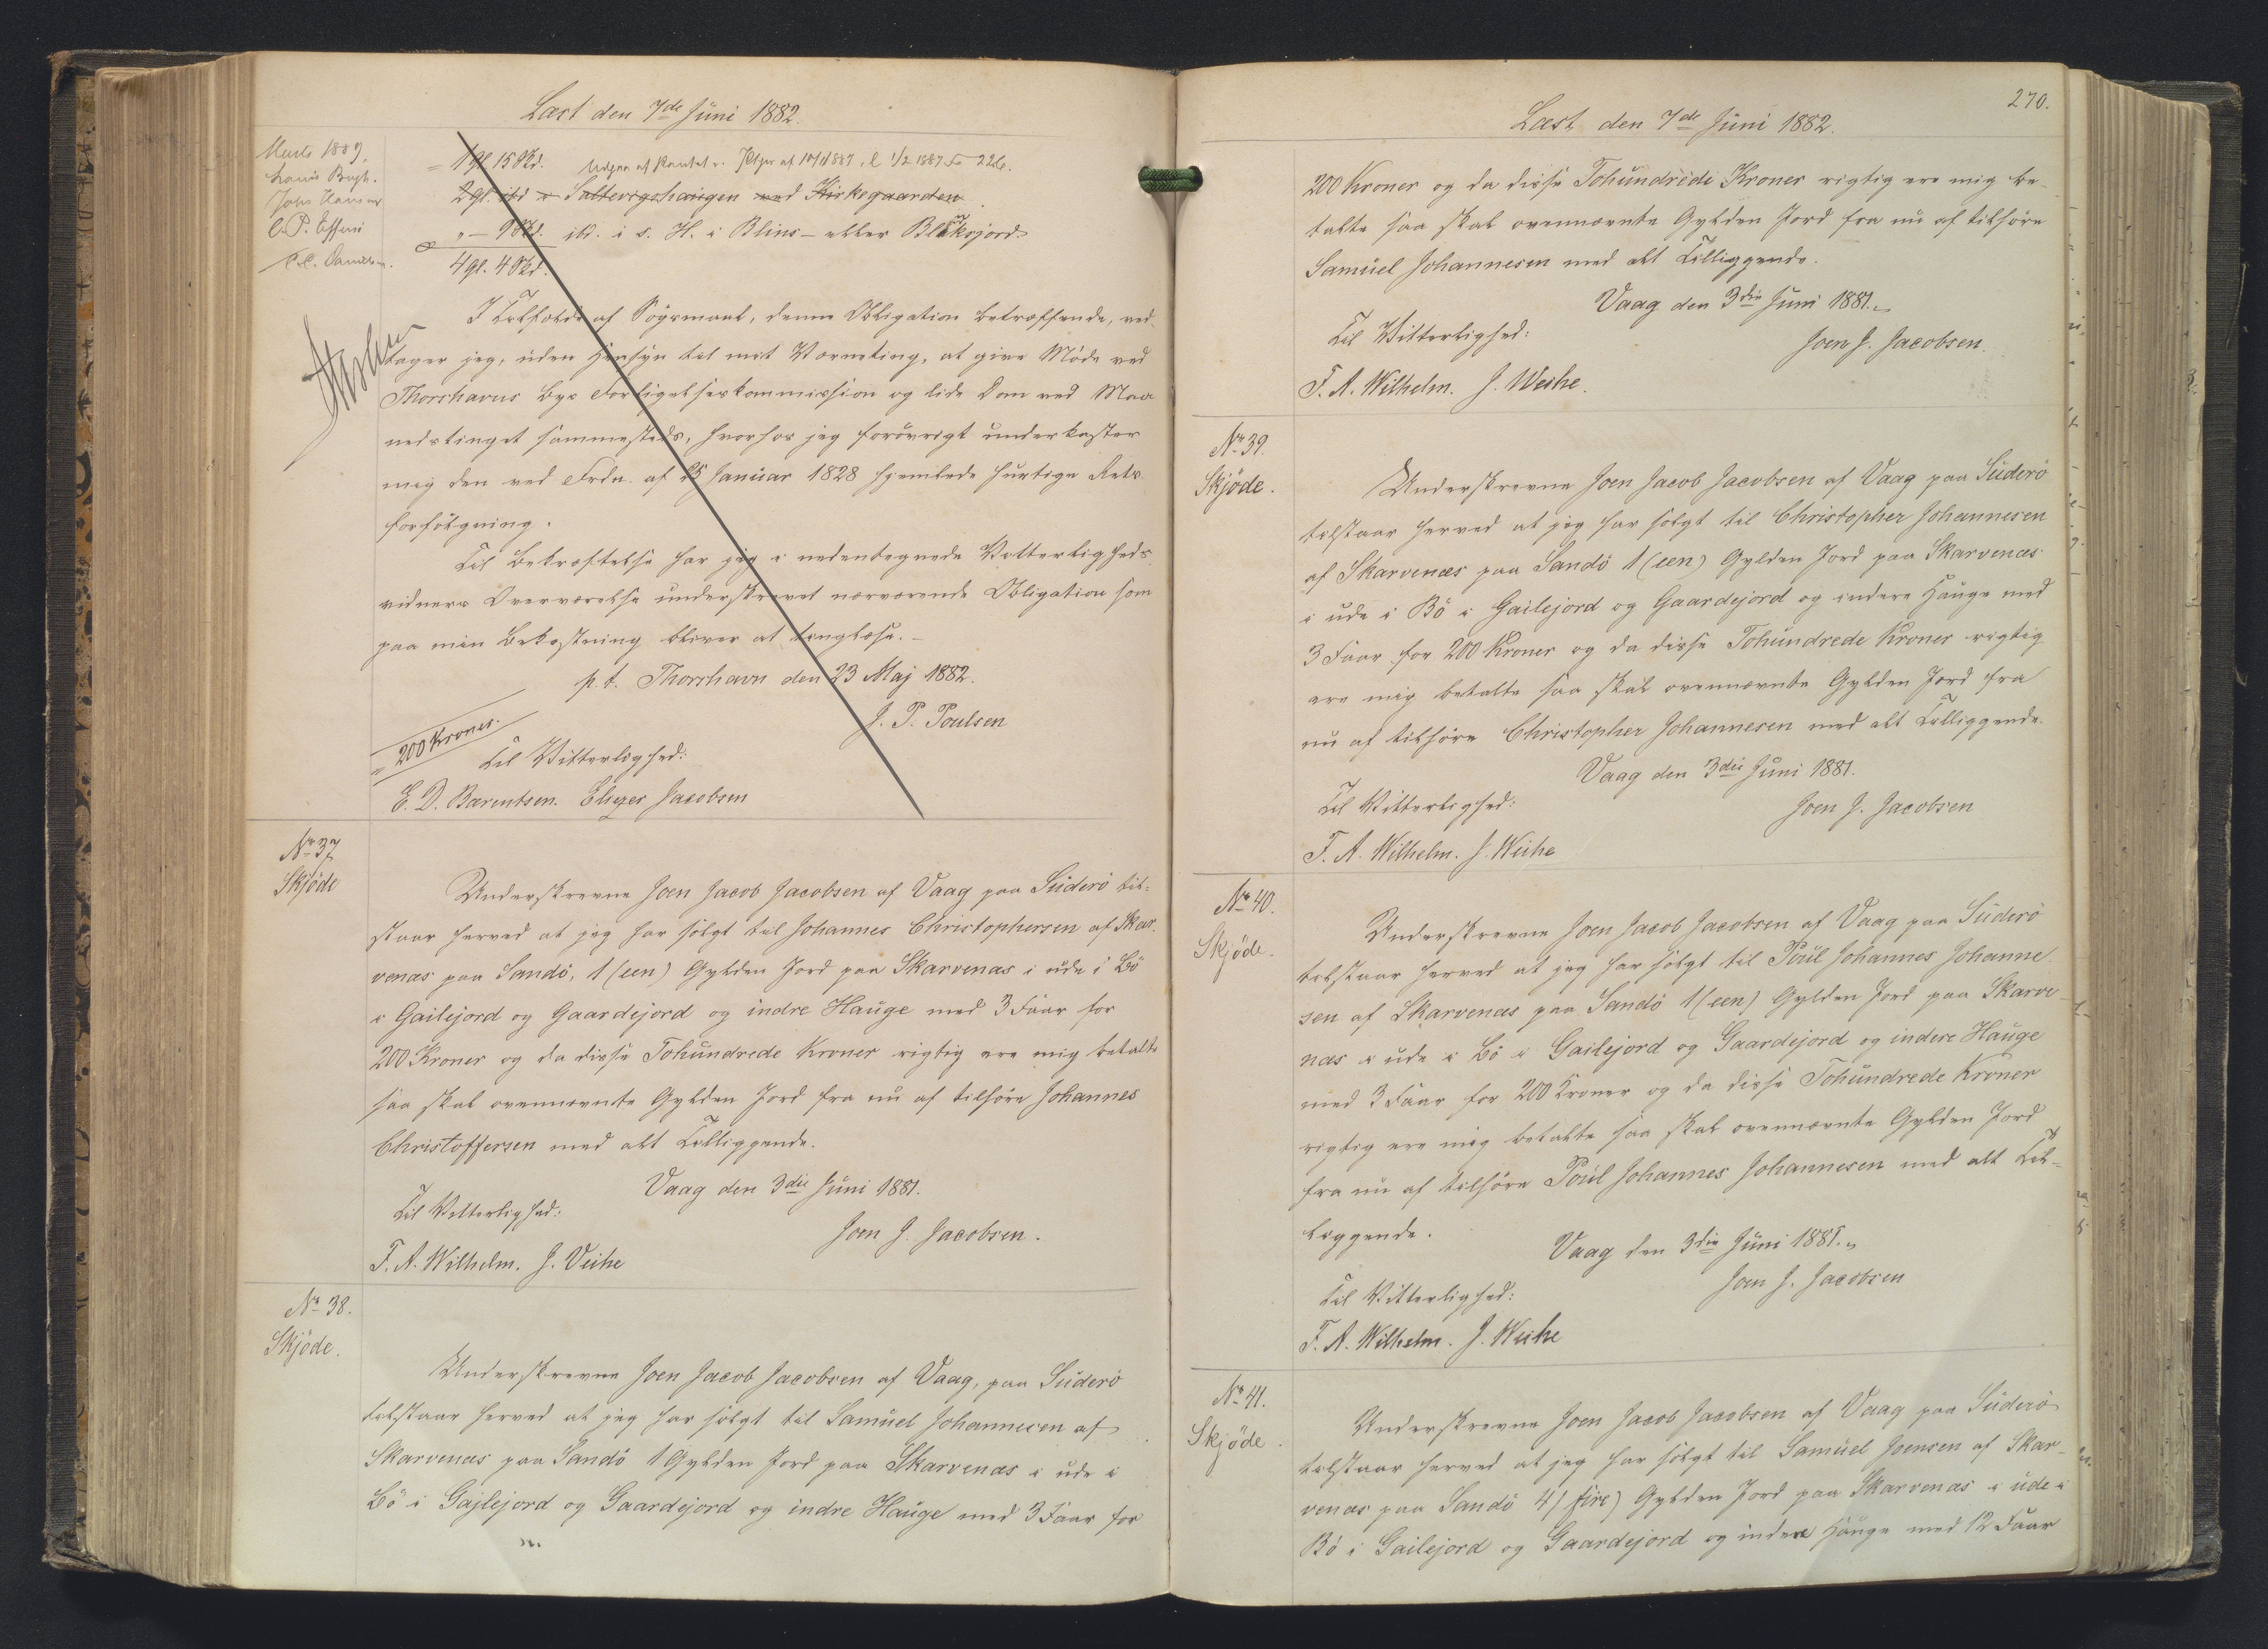 Læst den 7de Juni 1882.
1 gl. 15 Skd.
2 gl. ibd i Saltevigshaugen ved Kirkegaarden
" — 9 Skd. ibd. i s. H. i Blins- eller
4 gl. 4 Skd.
I Tilfælde af Søgsmaal, denne Obligation betræffende, ved-
tager jeg, uden Hensyn til mit Værneting, at give Møde ved
Thorshavns Byes Forligelseskommission og lide Dom ved Maa
nedstinget sammesteds, hvorhos jeg forøvrigt underkaster
mig den ved Frdn. af 25 Januar 1828 hjemlede hurtige Rets
forfølgning.
Til Bekræftelse har jeg i nedentegnede Vitterligheds
vidners Overværelse underskrevet nærværende Obligation som
paa min Bekostning bliver at tinglæse. —
p.t. Thorshavn den 23 Maj 1882.
J. P. Poulsen
200 Kroner.
Til Vitterlighed:
E. D. Bærentsen. Elieser Jacobsen
No 37
Skjøde
Underskrevne Joen Jacob Jacobsen af Vaag paa Süderö til-
staar herved at jeg har solgt til Johannes Christophersen af Skar
venæs paa Sandö, 1 (een) Gylden Jord paa Skarvenæs i ude i Bö
i Gailejord og Gaardejord og indre Hauge med 3 Faar for
200 Kroner og da disse Tohundrede Kroner rigtig ere mig betalte
saa skal ovennævnte Gylden Jord fra nu af tilhøre Johannes
Christoffersen med alt Tilliggende.
Vaag den 3die Juni 1881.
Til Vitterlighed:
Joen J. Jacobsen.
F. A. Wilhelm. J. Veihe
No 38.
Skjøde.
Underskrevne Joen Jacob Jacobsen af Vaag, paa Süderö
tilstaar herved at jeg har solgt til Samuel Johannesen af
Skarvenæs paa Sandö 1 Gylden Jord paa Skarvenæs i ude i
Bö i Gajlejord og Gaardejord og indre Hauge med 3 Faar for
270.
Læst den 7de Juni 1882.
200 Kroner og da disse Tohundrede Kroner rigtig ere mig be-
talte saa skal ovennævnte Gylden Jord fra nu af tilhøre
Samuel Johannesen med alt Tilliggende.
Vaag den 3die Juni 1881.
Til Vitterlighed:
Joen J. Jacobsen.
F. A. Wilhelm. J. Weihe.
No 39.
Skjøde.
Underskrevne Joen Jacob Jacobsen af Vaag paa Süderö
tilstaar herved at jeg har solgt til Christopher Johannesen
af Skarvenæs paa Sandö 1 (een) Gylden Jord paa Skarvenæs
i ude i Bö i Gailejord og Gaardejord og indere Hauge med
3 Faar for 200 Kroner og da disse Tohundrede Kroner rigtig
ere mig betalte saa skal ovennævnte Gylden Jord fra
nu af tilhøre Christopher Johannesen med alt Tilliggende.
Vaag den 3die Juni 1881.
Til Vitterlighed:
Joen J. Jacobsen
F. A. Wilhelm. J. Weihe
No 40.
Skjøde.
Underskrevne Joen Jacob Jacobsen af Vaag paa Süderö
tilstaar herved at jeg har solgt til Poul Johannes Johanne
sen af Skarvenæs paa Sandö 1 (een) Gylden Jord paa Skarve-
næs i ude i Bö i Gailejord og Gaardejord og indere Hauge
med 3 Faar for 200 Kroner og da disse Tohundrede Kroner
rigtig ere mig betalte saa skal ovennævnte Gylden Jord
fra nu af tilhøre Poul Johannes Johannesen med alt Til-
liggende.
Vaag den 3die Juni 1881.
Til Vitterlighed:
Joen J. Jacobsen
F. A. Wilhelm. J. Weihe
No 41.
Skjøde.
Underskrevne Joen Jacob Jacobsen af Vaag paa Süderö
tilstaar herved at jeg har solgt til Samuel Joensen af Skar-
venæs paa Sandö 4 (fire) Gylden Jord paa Skarvenæs i ude i
Bö i Gailejord og Gaardejord og indere Hauge med 12 Faar